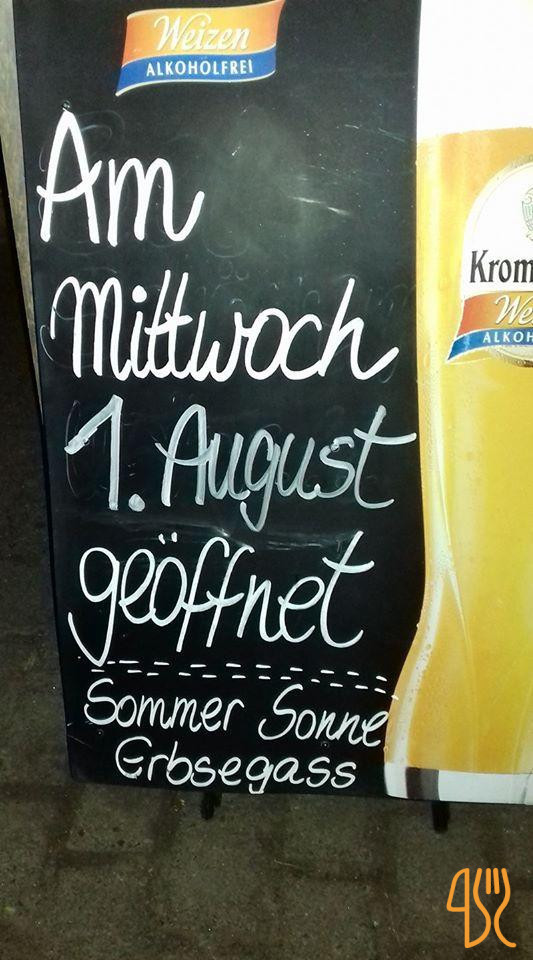 Weizen
ALKOHOLFREI
Am
Mittwoch
1. August
geöffnet
Sommer Sonne
Erbsegass
Krom
We
ALKOH